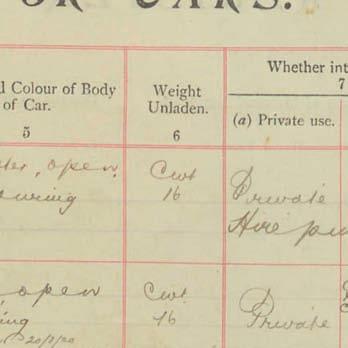 OR CARS.
d Colour of Body
of Car.
5
Weight
Unladen.
6
Whether int
7
(a) Private use.
open
ouring
Cwt
16
Private
Hire pu
open
ing
20/8/20
Cwt
16
Private